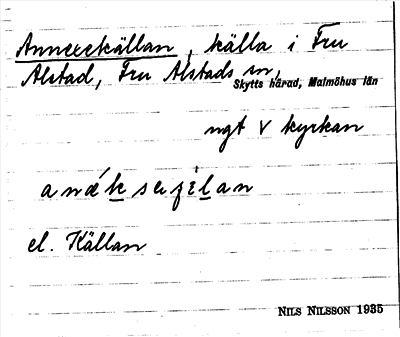 Annexekällan, källa i Fru
Alstad, Fru Alstads sn,
Skytts härad, Malmöhus län
ngt v kyrkan
el. Källan
NILS NILSSON 1935